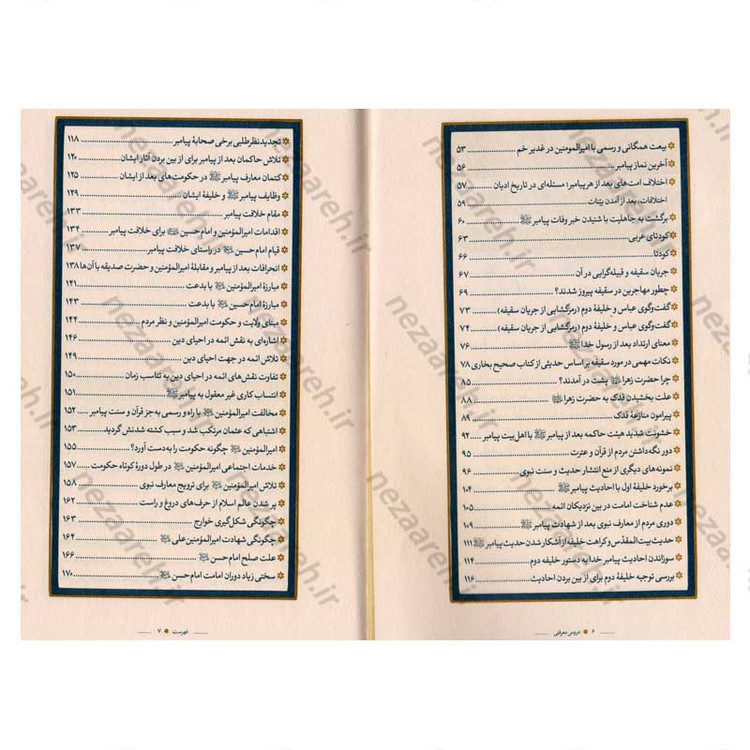 بیعت همگانی و رسمی با امیرالمومنین در غدیر خم ۵۳
آخرین نماز پیامبر ۵۶
اختلاف امت‌های بعد از هر پیامبر؛ مسئله‌ای در تاریخ ادیان ۵۷
اختلافات، بعد از آمدن بیّنات ۵۹
برگشت به جاهلیت با شنیدن خبر وفات پیامبر ﷺ ۶۰
کودتای عربی ۶۳
کودتا ۶۶
جریان سقیفه و قبیله‌گرایی در آن ۶۷
چطور مهاجرین در سقیفه پیروز شدند؟ ۶۹
گفت‌وگوی عباس و خلیفهٔ دوم (رمزگشایی از جریان سقیفه) ۷۳
گفت‌وگوی عباس و خلیفهٔ دوم (رمزگشایی از جریان سقیفه) ۷۴
معنای ارتداد بعد از رسول خدا ﷺ ۷۶
نکات مهمی در مورد سقیفه بر اساس حدیثی از کتاب صحیح بخاری ۷۸
چرا حضرت زهرا پشت در آمدند؟ ۸۵
علت بخشیدن فدک به حضرت زهرا ۸۸
پیرامون منازعهٔ فدک ۸۹
خشونت شدید هیئت حاکمه بعد از پیامبر ﷺ با اهل‌بیت پیامبر ۹۲
دور نگه‌داشتن مردم از قرآن و عترت ۹۵
نمونه‌های دیگری از منع انتشار حدیث و سنت نبوی ۹۶
برخورد خلیفهٔ اول با احادیث پیامبر ﷺ ۱۰۴
عدم شناخت امامت در بین نزدیکان ائمه ۱۰۵
دوری مردم از معارف نبوی بعد از شهادت پیامبر ﷺ ۱۰۹
حدیث بیت‌المقدس و کراهت خلیفه از آشکار شدن حدیث پیامبر ﷺ ۱۱۱
سوزاندن احادیث پیامبر خدا به دستور خلیفه دوم ۱۱۴
بررسی توجیه خلیفهٔ دوم برای از بین بردن احادیث ۱۱۶
۶ دروس معرفتی
تجدیدنظرطلبی برخی صحابهٔ پیامبر ۱۱۸
تلاش حاکمان بعد از پیامبر برای از بین بردن آثار ایشان ۱۲۰
کتمان معارف پیامبر ﷺ در حکومت‌های بعد از ایشان ۱۲۵
وظایف پیامبر ﷺ و خلیفهٔ ایشان ۱۲۹
مقام خلافت پیامبر ۱۳۳
اقدامات امیرالمؤمنین و امام حسین برای خلافت پیامبر ۱۳۴
قیام امام حسین در راستای خلافت پیامبر ۱۳۷
انحرافات بعد از پیامبر و مقابلهٔ امیرالمؤمنین و حضرت صدیقه با آن‌ها ۱۳۸
مبارزهٔ امیرالمؤمنین با بدعت ۱۴۱
مبارزهٔ امام حسین با بدعت ۱۴۳
مبنای ولایت و حکومت امیرالمؤمنین و نظر مردم ۱۴۴
اشاره‌ای به نقش ائمه در احیای دین ۱۴۶
تلاش ائمه در جهت احیای دین ۱۴۹
تفاوت نقش‌های ائمه در احیای دین به تناسب زمان ۱۵۰
انتساب کاری غیر معقول به پیامبر ﷺ ۱۵۱
مخالفت امیرالمؤمنین با راه و رسمی به جز قرآن و سنت پیامبر ۱۵۲
اشتباهی که عثمان مرتکب شد و سبب کشته شدنش گردید ۱۵۳
امیرالمؤمنین چگونه حکومت را به‌دست آورد؟ ۱۵۵
خدمات اجتماعی امیرالمؤمنین در طول دورهٔ کوتاه حکومت ۱۵۷
تلاش امیرالمؤمنین برای ترویج معارف نبوی ۱۵۸
پر شدن عالم اسلام از حرف‌های دروغ و راست ۱۶۲
چگونگی شکل‌گیری خوارج ۱۶۳
چگونگی شهادت امیرالمؤمنین علی ۱۶۴
علت صلح امام حسن ۱۶۶
سختی زیاد دوران امامت امام حسن ۱۷۰
فهرست ۷
nezaareh.ir